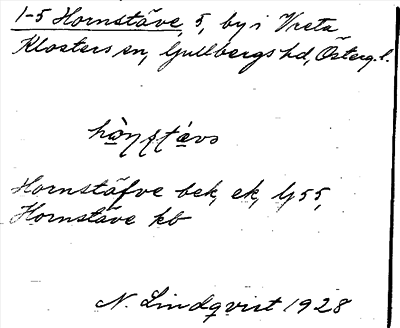 1-5 Hornstäve, 5, by i Vreta
Klosters sn, Gullbergs hd, Österg. l.
Hornstäfve bek, ek, Gs 5,
Hornstäve kb
N. Lindqvist 1928